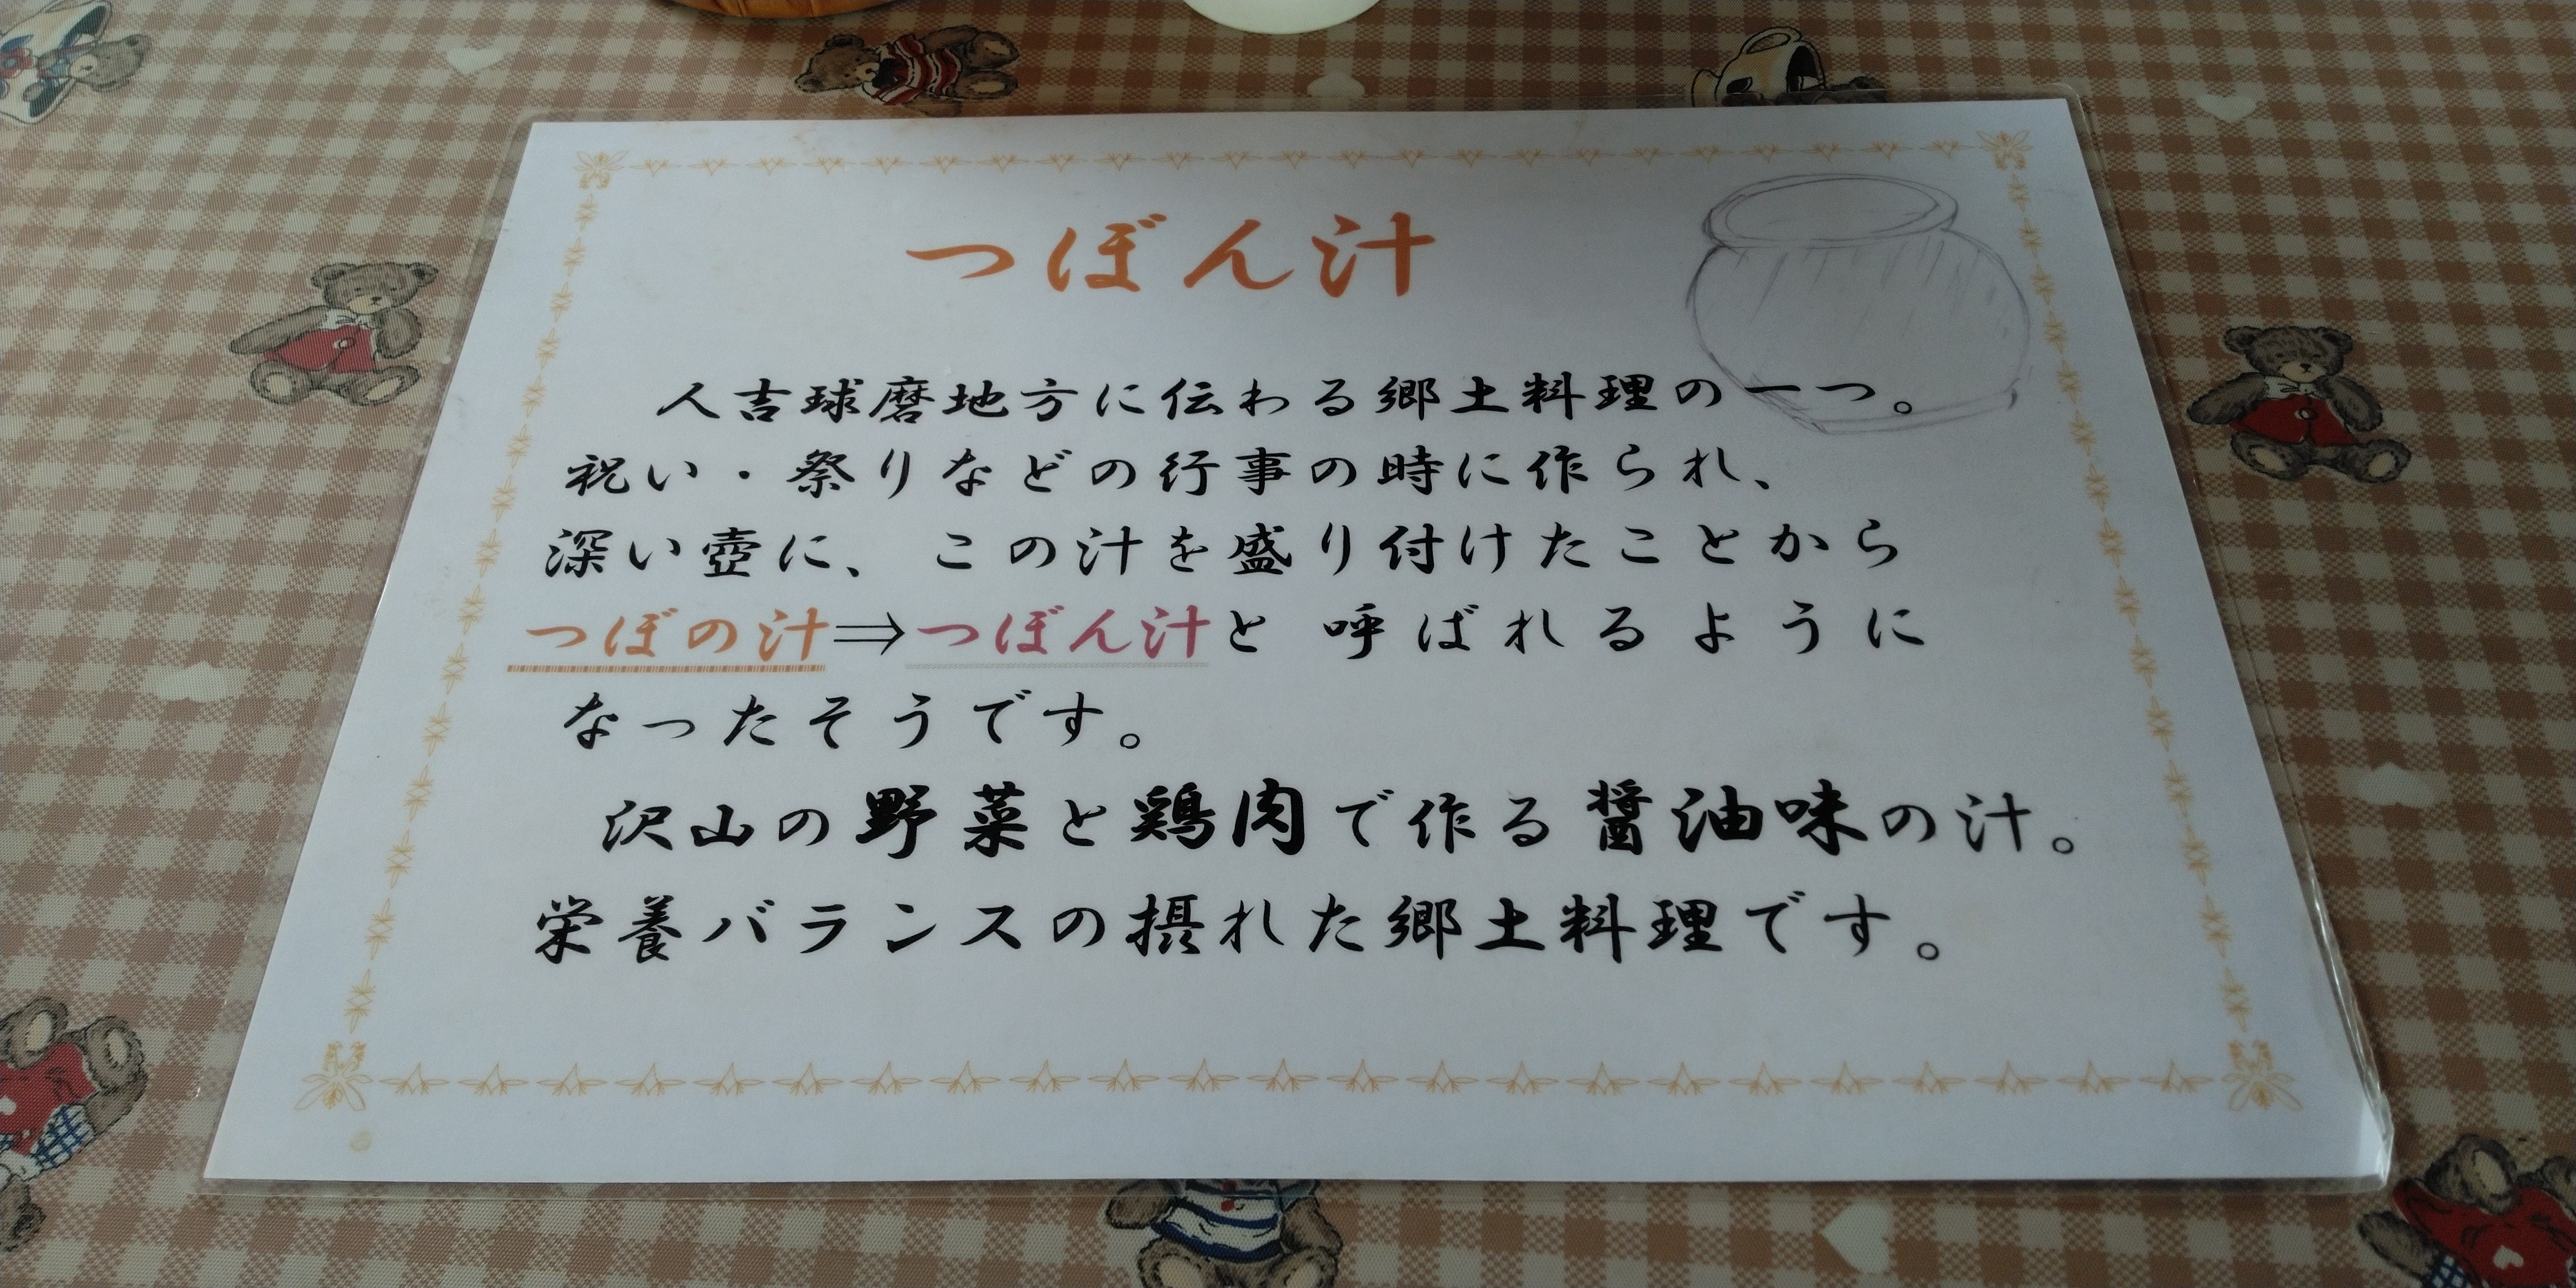 つぼん汁
人吉球磨地方に伝わる郷土料理の一つ。
祝い・祭りなどの行事の時に作られ、
深い壺に、この汁を盛り付けたことから
つぼの汁⇒つぼん汁と呼ばれるように
なったそうです。
沢山の野菜と鶏肉で作る醤油味の汁。
栄養バランスの摂れた郷土料理です。